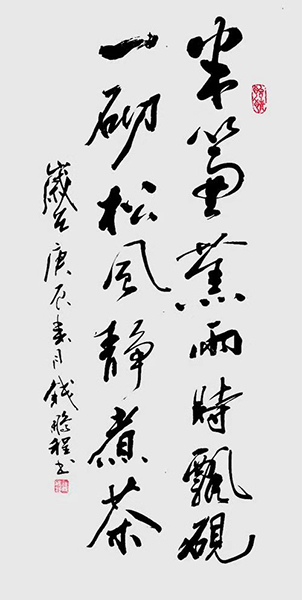 半簾蕉雨時飄硯
一砌松風靜煮茶
歲在庚辰春月錢鵬程書